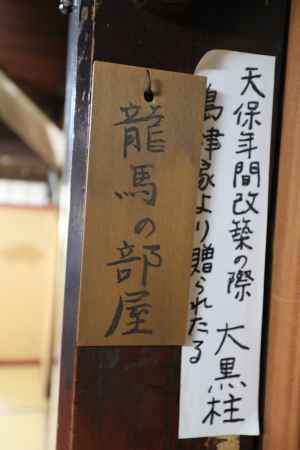 天保年間改築の際
島津家より贈られたる
大黒柱
龍馬の部屋